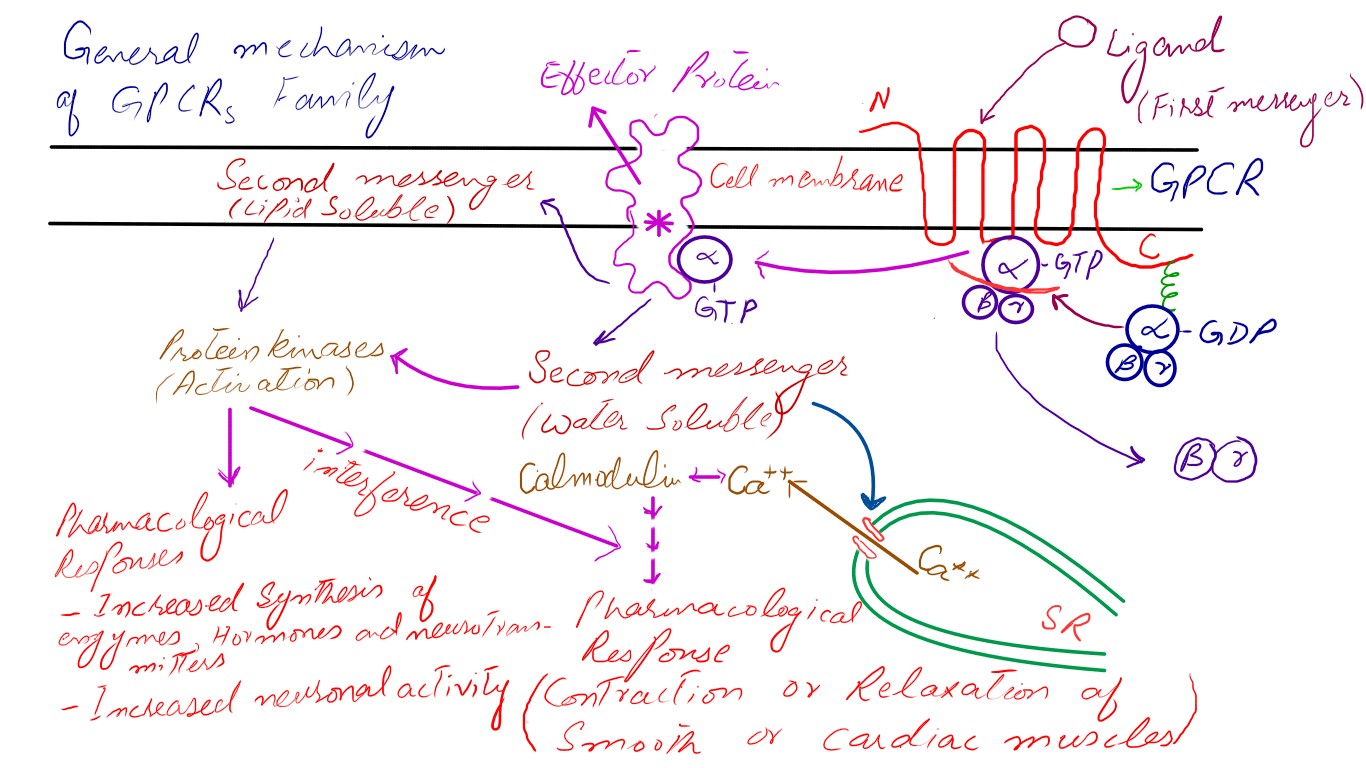 General mechanism
of GPCRs Family
Effector Protein
N
Ligand
(First messenger)
Second messenger
(Lipid Soluble)
Cell membrane
GPCR
*
α
GTP
α-GTP
β γ
C
α-GDP
β γ
Protein kinases
(Activation)
Second messenger
(Water Soluble)
β γ
interference
Calmodulin
Ca++
Ca++
SR
Pharmacological
Responses
- Increased Synthesis of
enzymes, Hormones and neurotrans-
mitters
- Increased neuronal activity
Pharmacological
Response
(Contraction or Relaxation of
Smooth or cardiac muscles)